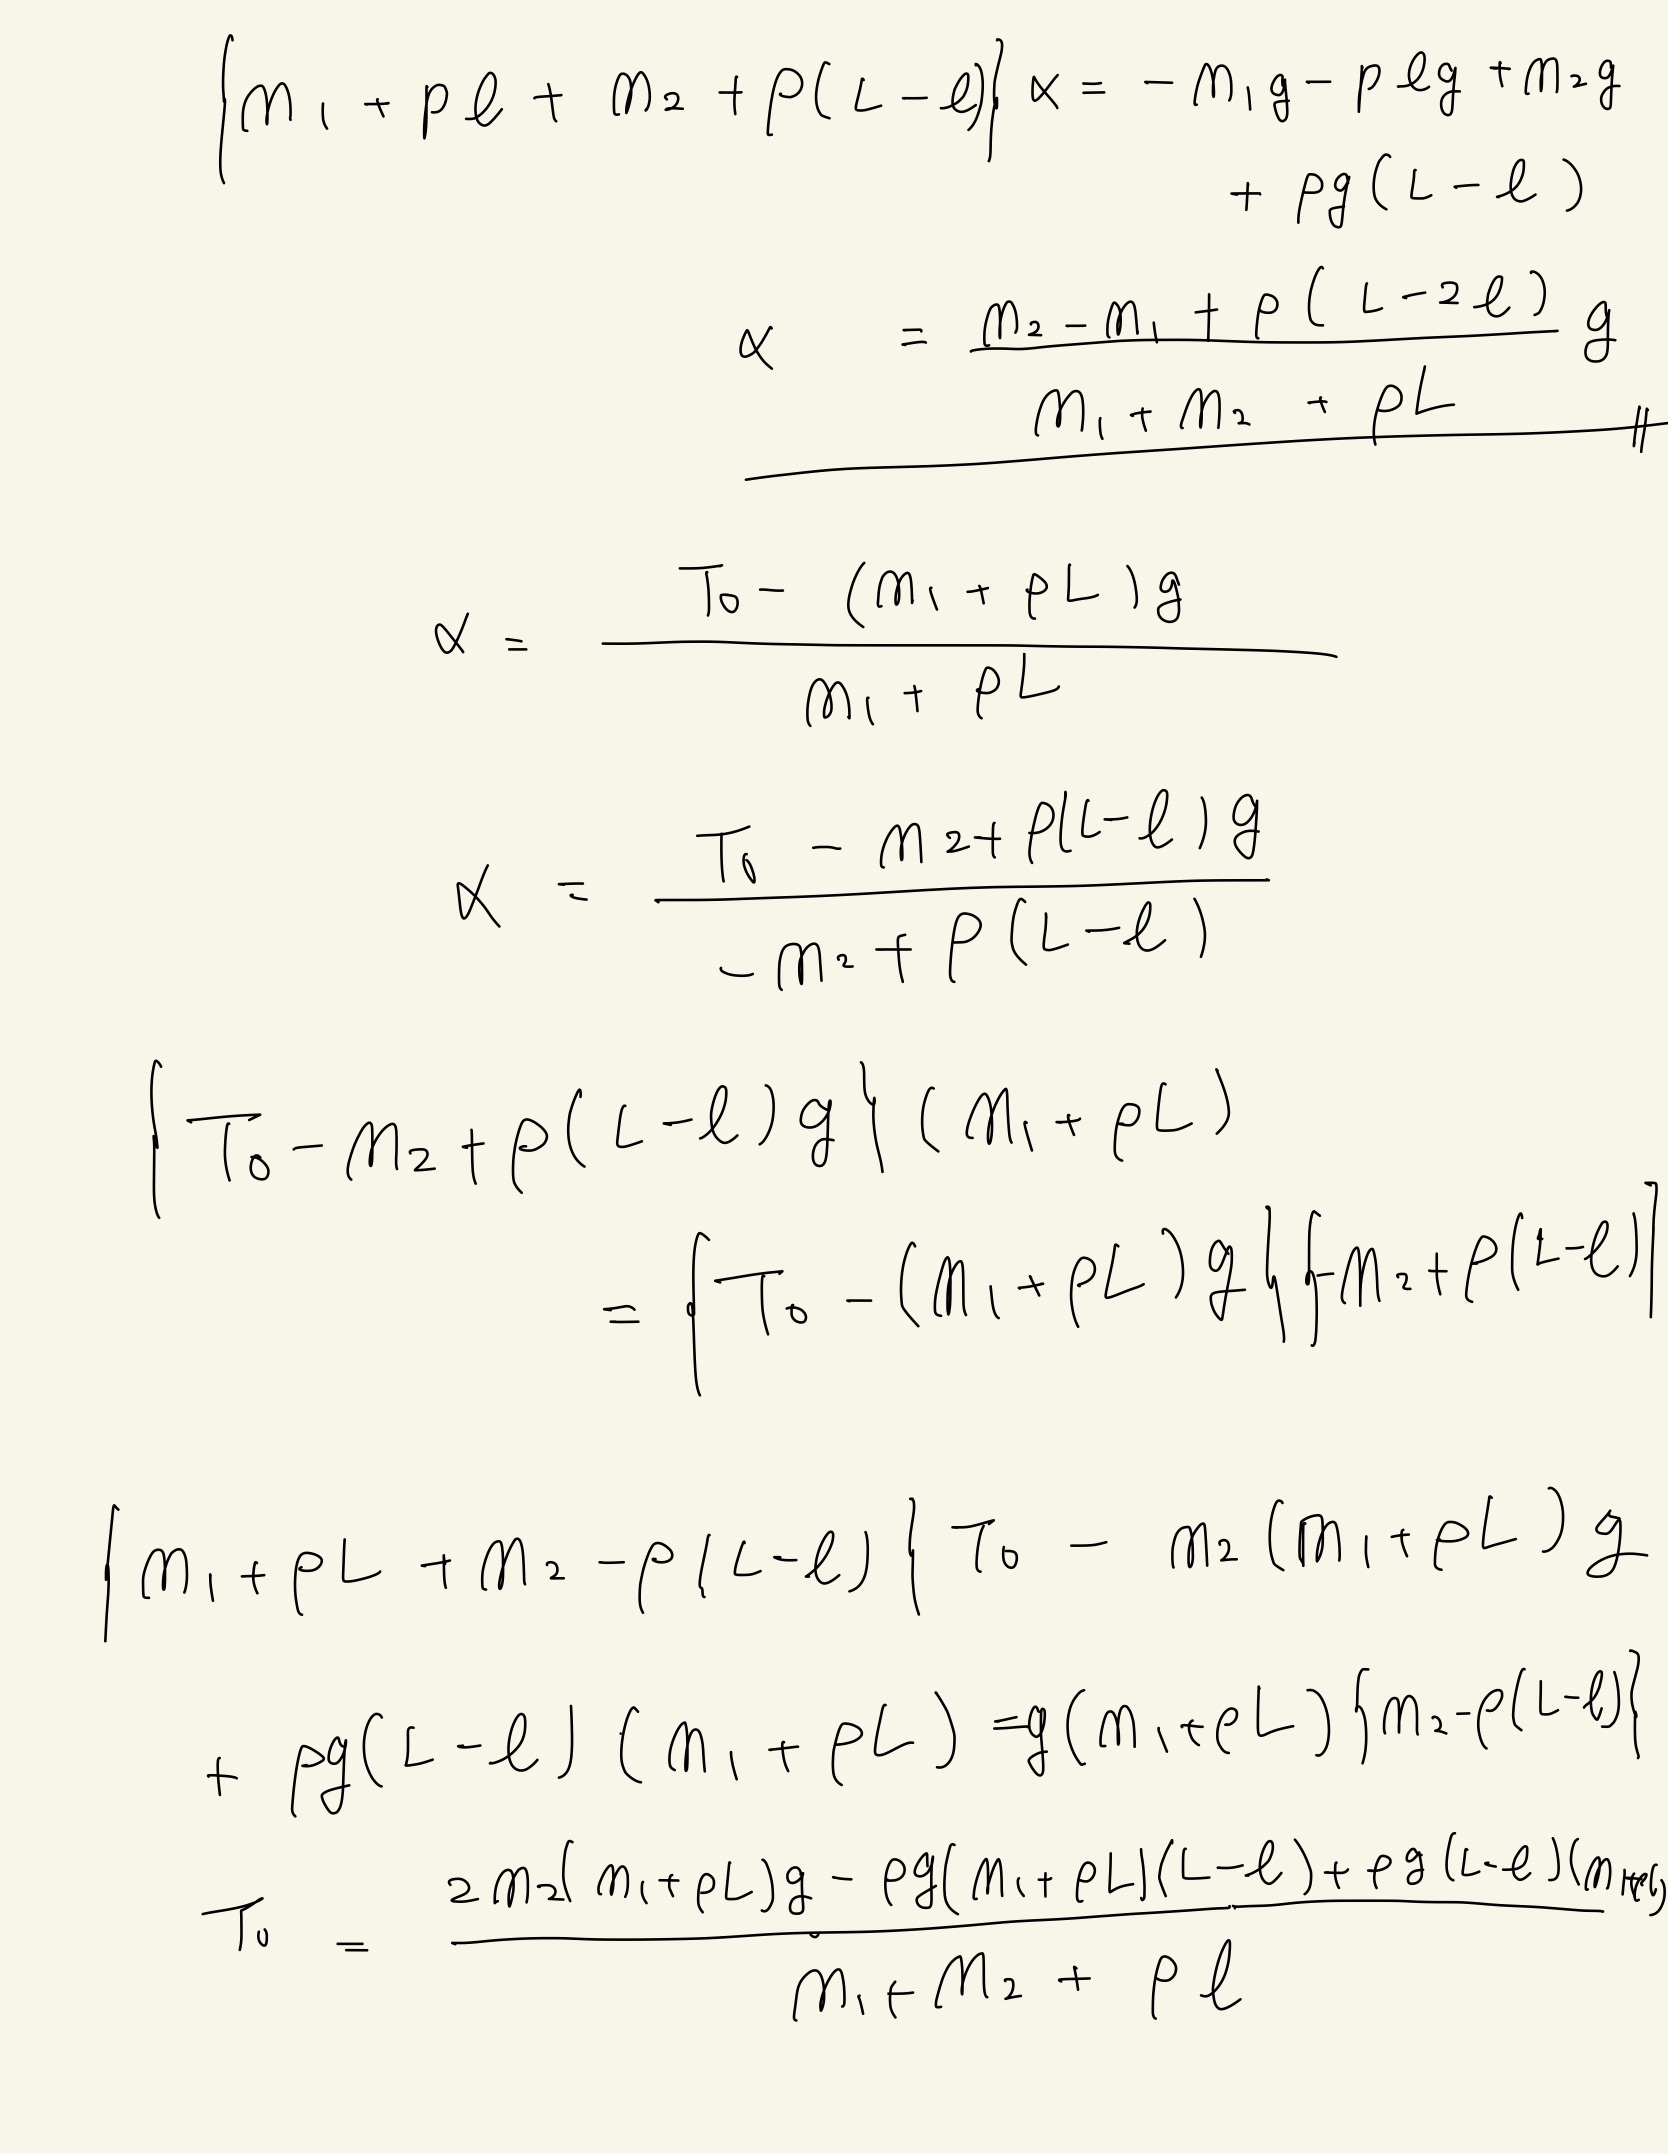 {m₁ + ρl + m₂ + ρ(L-l)} α = -m₁g - ρlg + m₂g
+ ρg(L-l)
α = (m₂ - m₁ + ρ(L-2l))/(m₁ + m₂ + ρL) g
α = (T₀ - (m₁ + ρL)g)/(m₁ + ρL)
α = (T₀ - m₂ + ρ(L-l)g)/(-m₂ + ρ(L-l))
{T₀ - m₂ + ρ(L-l)g} (m₁ + ρL)
= {T₀ - (m₁ + ρL)g}{-m₂ + ρ(L-l)}
{m₁ + ρL + m₂ - ρ(L-l)} T₀ - m₂(m₁ + ρL)g
+ ρg(L-l)(m₁ + ρL) = g(m₁ + ρL){m₂ - ρ(L-l)}
T₀ = (2m₂(m₁ + ρL)g - ρg(m₁ + ρL)(L-l) + ρg(L-l)(m₁+ρL))/(m₁ + m₂ + ρl)